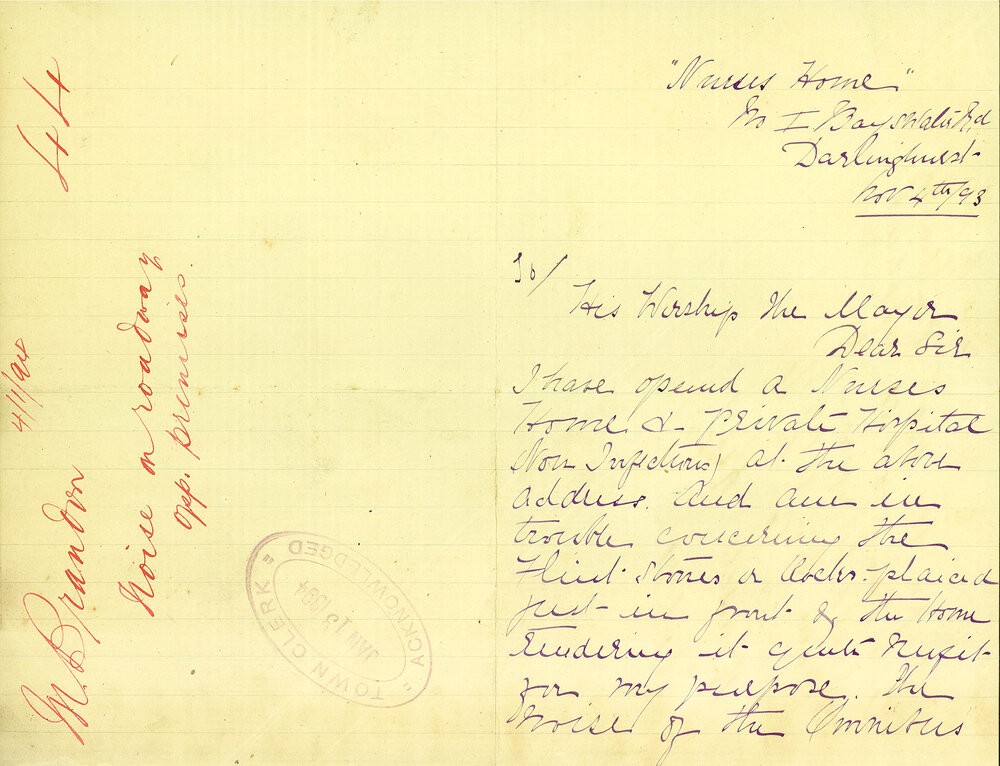 44
4/1/94
M. Brandon
Noise on roadway
opp. premises.
"TOWN CLERK"
JAN 15 1894
ACKNOWLEDGED
"Nurses Home"
No I Bayswater Rd
Darlinghurst
Nov 4th/93
To/
His Worship the Mayor
Dear Sir
I have opend a Nurses
Home & Private Hospital
Non Infectious) at the above
address. And am in
trouble concerning the
Flint Stones or placed
just in front of the Home
rendering it quite Unfit
for my purpose. The
Noise of the Omnibus